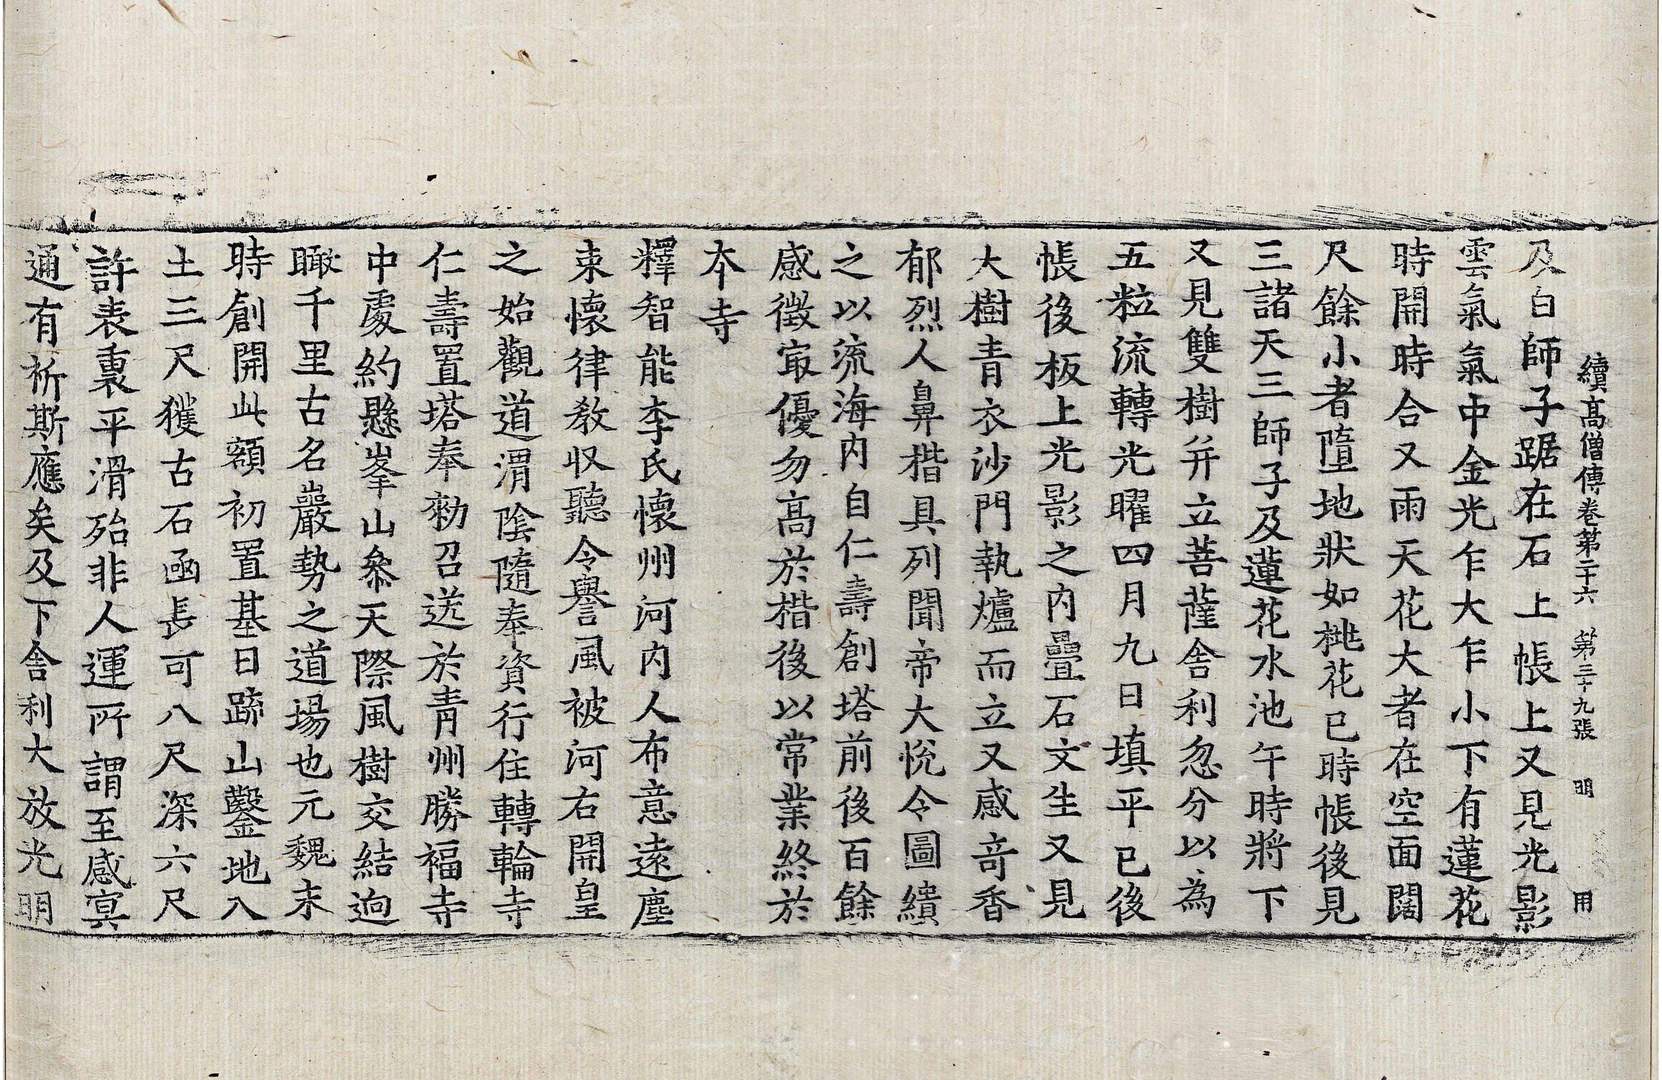 續高僧傳卷第二十六 第三十九張 明 用
及白師子踞在石上帳上又見光影
雲氣氣中金光乍大乍小下有蓮花
時開時合又雨天花大者在空面闊
尺餘小者墮地狀如桃花巳時帳後見
三諸天三師子及蓮花水池午時將下
又見雙樹并立菩薩舍利忽分以為
五粒流轉光曜四月九日填平已後
帳後板上光影之內疊石文生又見
大樹青衣沙門執爐而立又感奇香
郁烈人鼻楷具列聞帝大悅令圖繢
之以流海內自仁壽創塔前後百餘
感徵㝡優勿高於楷後以常業終於
本寺
釋智能李氏懷州河內人布意遠塵
束懷律教収聽令譽風被河右開皇
之始觀道渭陰隨奉資行住轉輪寺
仁壽置塔奉勑召送於青州勝福寺
中處約懸峯山叅天際風樹交結迥
瞰千里古名巖勢之道場也元魏末
時創開此額初置基日跡山鑿地入
土三尺獲古石函長可八尺深六尺
許表裏平滑殆非人運所謂至感㝠
通有祈斯應矣及下舍利大放光明